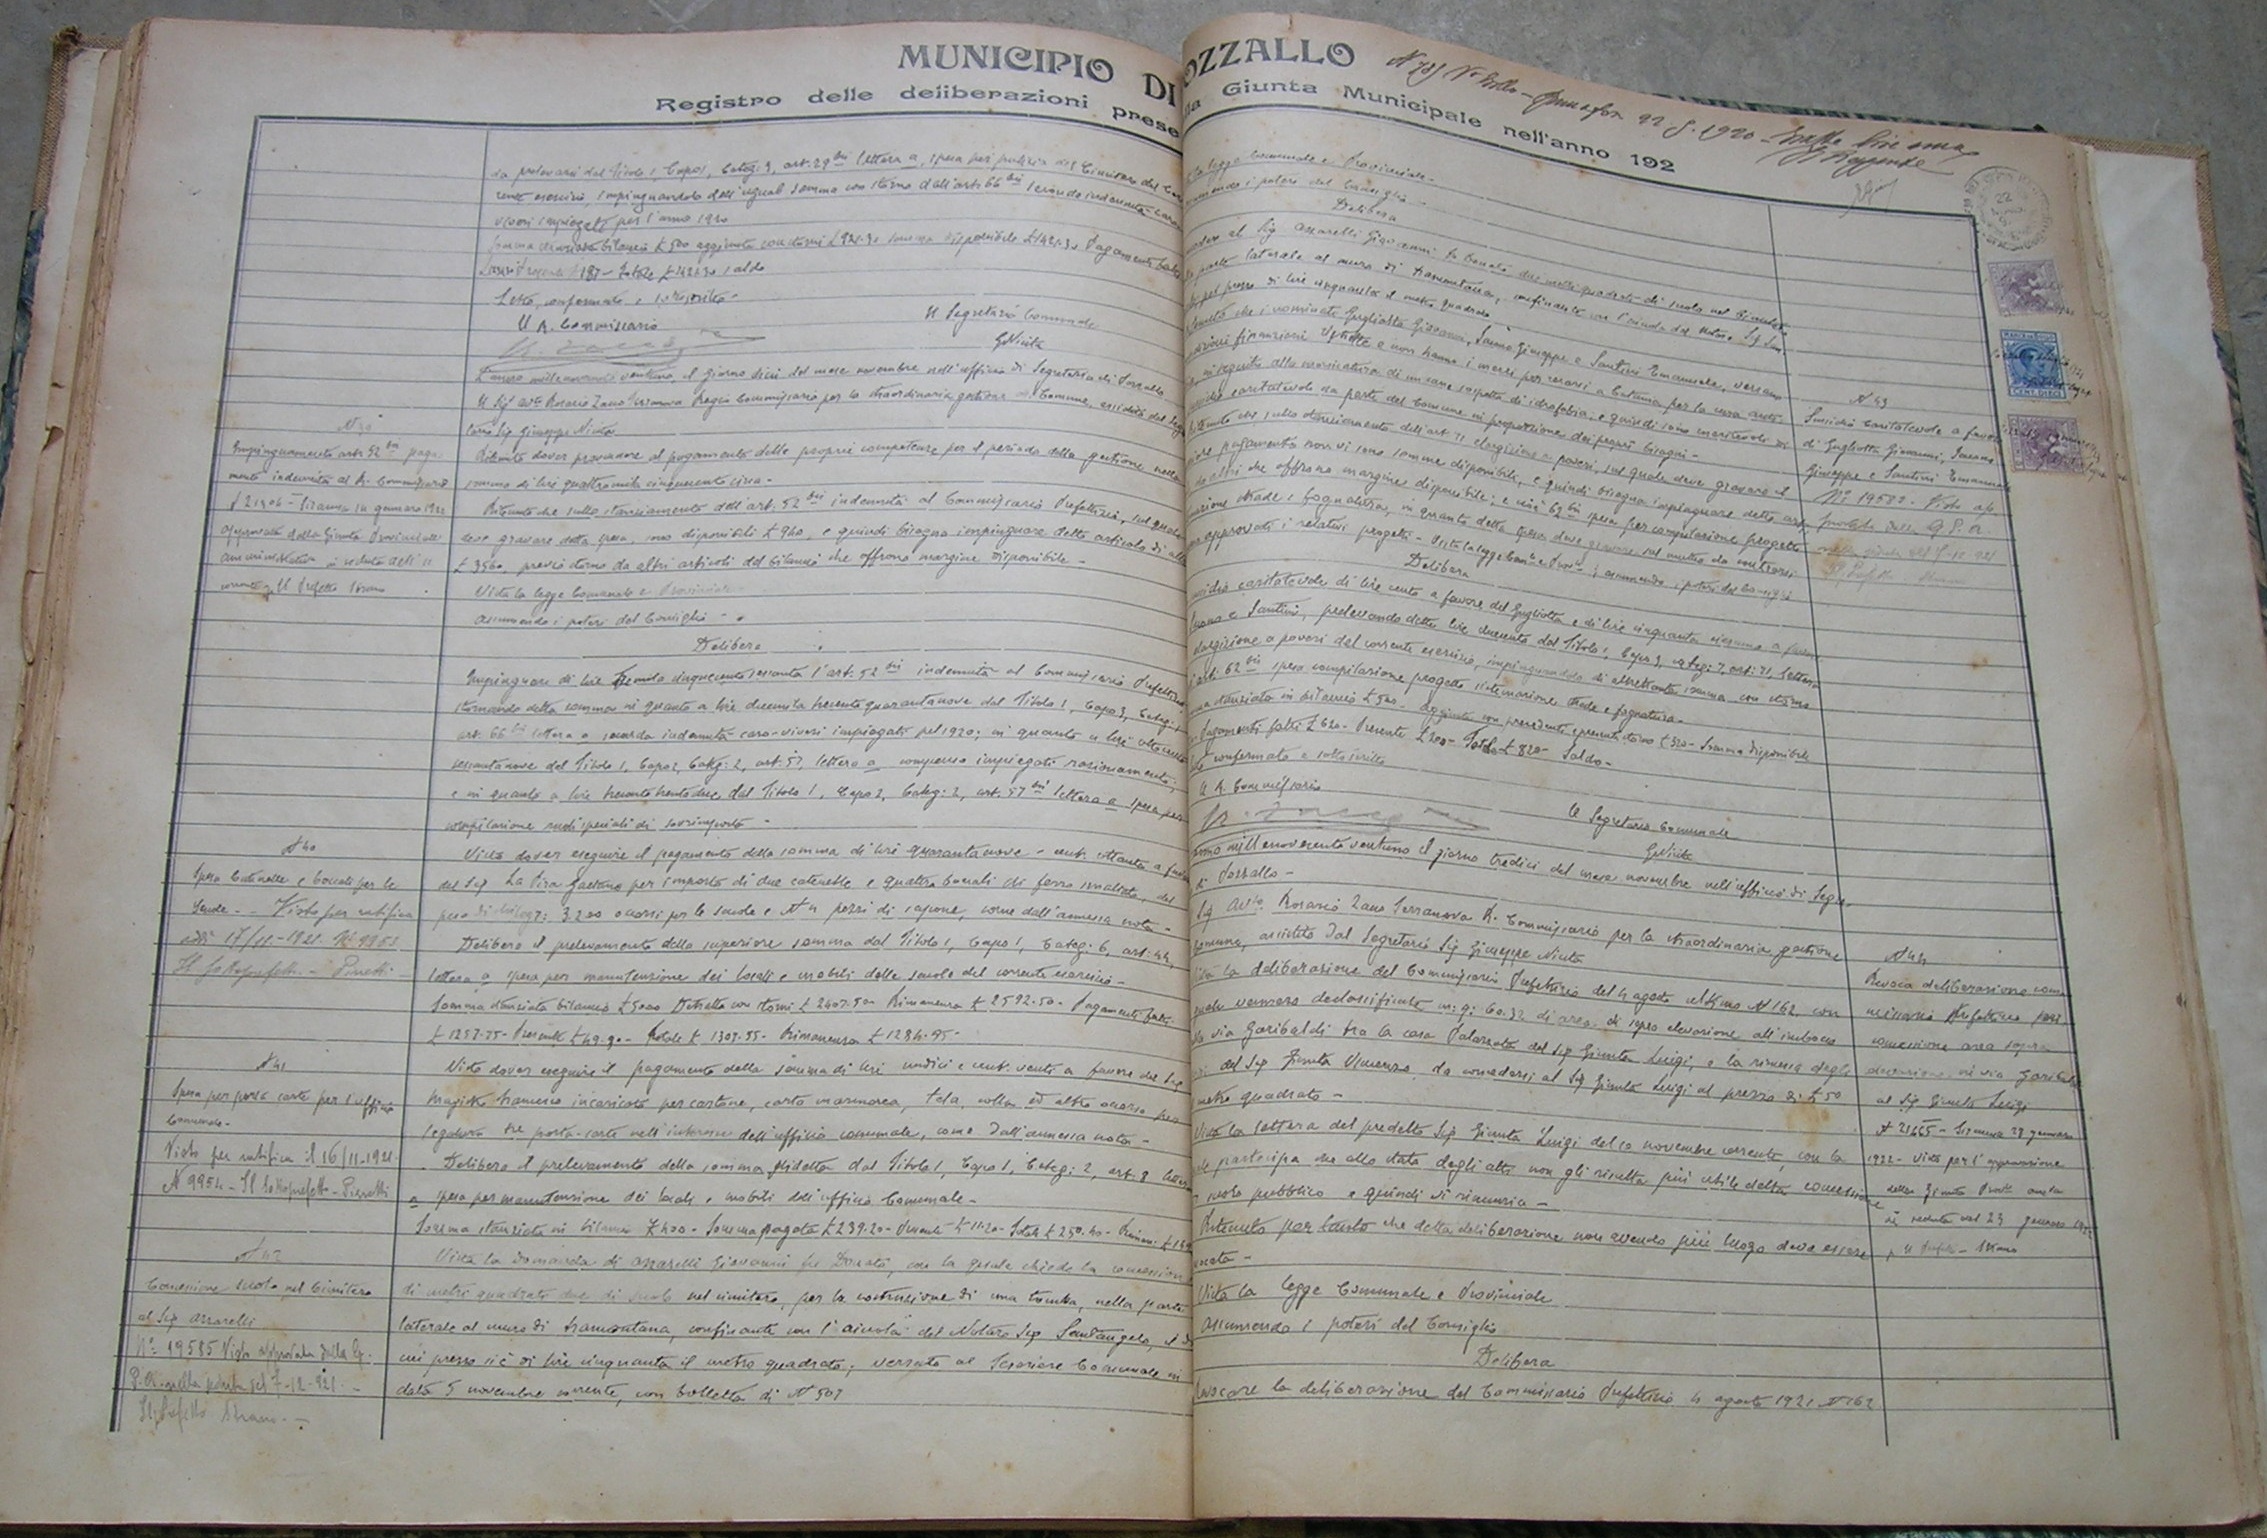 MUNICIPIO DI
Registro delle deliberazioni prese
da prelevarsi dal Titolo 1, Capo 1, Categ: 3, art. 29 bis lettera a, spesa per pulizia del Cimitero del
rente esercizio, impinguandolo dell'ugual somma con storno dall'art. 66 bis seconda indennità caro
viveri impiegati per l'anno 1920
bilancio £ 500 aggiunta con storni £ 921.30 somma disponibile £ 1421.30 Pagamenti
saldo
Letto, confermato e sottoscritto -
Il R. Commissario
Il Segretario Comunale
G Niuta
L'anno millenovecento ventuno, il giorno dieci del mese novembre nell'ufficio di Segreteria di Pozzallo
Il Sig. avv. Rosario Zano Terranova Regio Commissario per la straordinaria gestione del Comune, assistito dal Segre
tario Sig. Giuseppe Niuta
Impinguamento art. 52 bis paga
mento indennità al R. Commissario
approvata dalla Giunta Provinciale
amministrativa in seduta dell'11
Il Prefetto
Ritenuto dover provvedere al pagamento delle proprie competenze per il periodo della gestione nella
somma di lire quattromila cinquecento circa -
Ritenuto che sullo stanziamento dell'art. 52 bis indennità al Commissario Prefettizio, sul quale
deve gravare detta spesa, sono disponibili £ 940, e quindi bisogna impinguare detto articolo di altre
£ 3560, previo storno da altri articoli del bilancio che offrono margine disponibile -
Vista la legge Comunale e Provinciale
assumendo i poteri del Consiglio -
Delibera
Impinguare di lire tremila cinquecento sessanta l'art. 52 bis indennità al Commissario Prefettizio
stornando detta somma in quanto a lire duemila trecento quarantanove dal Titolo 1, Capo 3, Categ:
art. 66 bis lettera a seconda indennità caro-viveri impiegati pel 1920; in quanto a lire ottocento
sessantanove dal Titolo 1, Capo 2, Categ: 2, art. 57, lettera a compenso impiegati razionamento;
e in quanto a lire trecento trentadue dal Titolo 1, Capo 2, Categ: 2, art. 57 bis lettera a spesa per
compilazione ruoli speciali di sovrimposta -
N 40
Spesa Catinelle e boccali per le
Scuole - Visto per ratifica
addì 17/11-1921. N 9953
Il Sottoprefetto - Pieretti
Visto dover eseguire il pagamento della somma di lire quarantanove - cent. ottanta a favore
del Sig. La Pira Gaetano per importo di due catinelle e quattro boccali di ferro smaltato, del
peso di chilog: 3.200 occorsi per le scuole e N 4 pezzi di sapone, come dall'annessa nota -
Delibera il prelevamento della superiore somma dal Titolo 1, Capo 1, Categ: 6, art. 44,
lettera a spesa per manutenzione dei locali e mobili delle scuole del corrente esercizio -
Somma stanziata bilancio £ 5000 Detratta con storni £ 2407.50 Rimanenza £ 2592.50 - Pagamenti fatti
£ 1257.75 - Presente £ 49.80 - Totale £ 1307.55 - Rimanenza £ 1284.95 -
N 41
Spesa per porta carte per l'ufficio
Comunale -
Visto per ratifica il 16/11-1921
N 9954 - Il Sottoprefetto - Pieretti
Visto dover eseguire il pagamento della somma di lire undici e cent. venti a favore del Sig.
Francesco incaricato per cartone, carta marmorea, tela, colla ed altro occorso per
legatura tre porta-carte nell'interesse dell'ufficio comunale, come dall'annessa nota -
Delibera il prelevamento della somma sudetta dal Titolo 1, Capo 1, Categ: 2, art. 8 lettera
a spesa per manutenzione dei locali e mobili dell'ufficio Comunale -
Somma stanziata in bilancio £ 400 - Somma pagata £ 239.20 - Presente £ 11.20 - Totale £ 250.40 -
N 42
Concessione suolo nel Cimitero
al Sig. Azzarelli
N° 19585 Visto approvata dalla G.
P. A. nella seduta del 7-12-921 -
Il Prefetto
Vista la domanda di Azzarelli Giovanni fu Donato, con la quale chiede la concessione
di metri quadrati due di suolo nel cimitero, per la costruzione di una tomba, nella parte
laterale al muro di tramontana, confinante con l'aiuola del Notaro Sig. Santangelo, il di
cui prezzo si è di lire cinquanta il metro quadrato; versato al Tesoriere Comunale in
data 5 novembre corrente, con bolletta di N 507
OZZALLO
la Giunta Municipale nell'anno 192
la legge Comunale e Provinciale -
assumendo i poteri del Consiglio -
Delibera
al Sig. Azzarelli Giovanni fu Donato due metri quadrati di suolo nel Cimitero
parte laterale al muro di tramontana, confinante con l'aiuola del Notaro Sig. San
pel prezzo di lire cinquanta il metro quadrato
N 43
Sussidio caritatevole a favore
di Gugliotta Giovanni,
Giuseppe e Santini Emanuele
N° 19582 - Visto ap
provata dalla G. P. A.
nella seduta del 7-12-921
Il Prefetto
che i nominati Gugliotta Giovanni, Giuseppe e Santini Emanuele, versano
condizioni finanziarie e non hanno i mezzi per recarsi a Catania per la cura anti
in seguito alla morsicatura di un cane sospetto di idrofobia, e quindi sono meritevoli di
sussidio caritatevole da parte del Comune in proporzione dei propri bisogni -
che sullo stanziamento dell'art. 71 elargizione a poveri, sul quale deve gravare il
pagamento non vi sono somme disponibili, e quindi bisogna impinguare detto art.
che offrono margine disponibile; e cioè 62 bis spesa per compilazione progetto
strade e fognatura, in quanto detta spesa deve gravare sul mutuo da contrarsi
approvati i relativi progetti - Vista la legge Com. e Prov. -; assumendo i poteri del Consiglio
Delibera
sussidio caritatevole di lire cento a favore del Gugliotta e di lire cinquanta ciascuno a favore
e Santini, prelevando dette lire duecento dal Titolo 1, Capo 3, categ: 7, art: 71, lettera
elargizione a poveri del corrente esercizio, impinguandolo di altrettanta somma con storno
art: 62 bis spesa compilazione progetto sistemazione strade e fognatura -
stanziata in bilancio £ 500 - aggiunta con precedente e presente storno £ 320 - Somma disponibile
Pagamenti fatti £ 620 - Presente £ 200 - Totale £ 820 - Saldo -
confermato e sottoscritto
Il R. Commissario
Il Segretario Comunale
G Niuta
anno millenovecento ventuno il giorno tredici del mese novembre nell'ufficio di Segre
di Pozzallo -
Sig. Avv. Rosario Zano Terranova R. Commissario per la straordinaria gestione
Comune, assistito dal Segretario Sig. Giuseppe Niuta
N 44
Revoca deliberazione com
missario Prefettizio per
concessione area sopra
elevazione in via Garibaldi
al Sig. Giunta Luigi
N 21665 - Siracusa 29 gennaio
1922 - Visto per l'approvazione
della Giunta Prov. amm
in seduta del 23 gennaio 1922
Vista la deliberazione del Commissario Prefettizio del 4 agosto ultimo N 162, con
quale vennero declassificati m: q: 60.32 di area di sopra elevazione all'imbocco
via Garibaldi tra la casa Palazzata del Sig. Giunta Luigi, e la rimessa degli
del Sig. Giunta Vincenzo, da concedersi al Sig. Giunta Luigi al prezzo di £ 50
metro quadrato -
Vista la lettera del predetto Sig. Giunta Luigi del 10 novembre corrente, con la
partecipa che allo stato degli atti non gli risulta più utile detta concessione
suolo pubblico e quindi vi rinunzia -
Ritenuto per tanto che detta deliberazione non avendo più luogo deve essere
Vista la legge Comunale e Provinciale
Assumendo i poteri del Consiglio
Delibera
Revocare la deliberazione del Commissario Prefettizio 4 agosto 1921 N 162